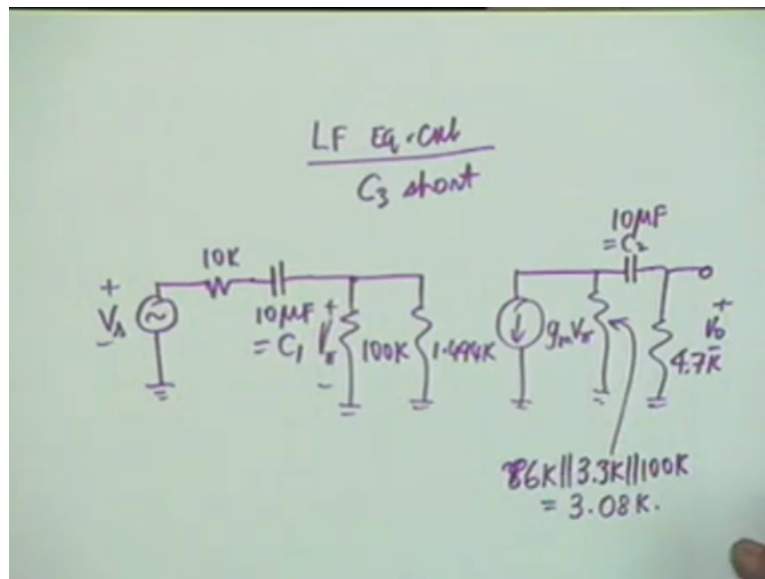 LF Eq. Ckt
C3 short
10K
10μF
= C1
+
Vs
-
+
Vπ
-
100K
1.494K
gmVπ
10μF
= C2
+
Vo
-
4.7K
86K||3.3K||100K
= 3.08K.